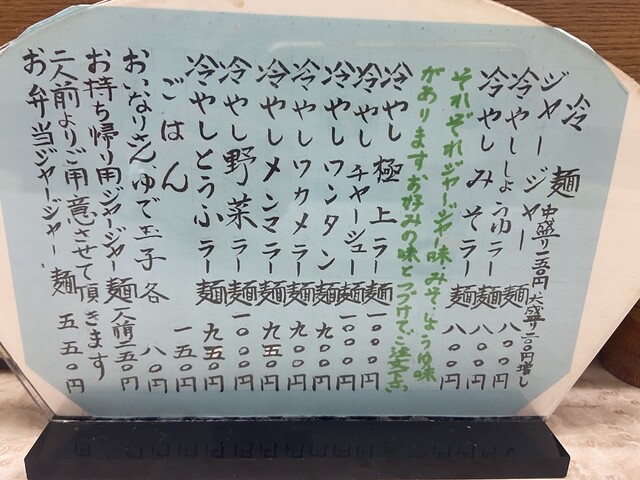 冷麺 中盛り一五〇円 大盛り二〇〇円増し
ジャージャー麺 八〇〇円
冷やししょうゆラー麺 八〇〇円
冷やしみそラー麺 八〇〇円
それぞれジャージャー味みそ、しょうゆ味
がありますお好みの味とつづけてご注文下さい
冷やし極上ラー麺 一〇〇〇円
冷やしチャーシュー麺 一〇〇〇円
冷やしワンタン麺 九〇〇円
冷やしワカメラー麺 九〇〇円
冷やしメンマラー麺 九五〇円
冷やし野菜ラー麺 一〇〇〇円
冷やしとうふラー麺 九五〇円
ごはん 一五〇円
おいなりさん、ゆで玉子 各 八〇円
お持ち帰り用ジャージャー麺 一人前
二人前よりご用意させて頂きます
お弁当ジャージャー麺 五五〇円